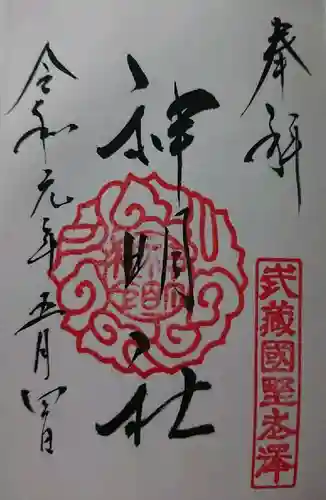 奉拝
武蔵國野老澤
神明社
令和元年五月四日